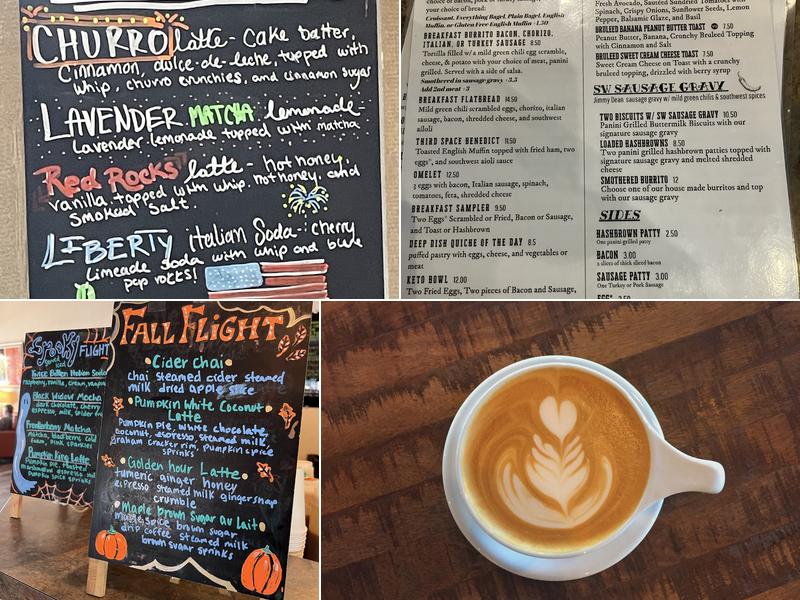 CHURRO Latte - Cake batter,
Cinnamon, dulce-de-leche, topped with
whip, churro crunchies, and cinnamon sugar
LAVENDER MATCHA lemonade
lavender lemonade topped with matcha
Red Rocks latte - hot honey
vanilla topped with whip, hot honey, and
smoked salt.
LIBERTY italian Soda - cherry
limeade soda with whip and blue
pop rocks!
choice of bacon, pork or turkey sausage, on
your choice of bread:
Croissant, Everything Bagel, Plain Bagel, English
Muffin, or Gluten Free English Muffin +1.50
BREAKFAST BURRITO BACON, CHORIZO,
ITALIAN, OR TURKEY SAUSAGE 8.50
Tortilla filled w/ a mild green chili egg scramble,
cheese, & potato with your choice of meat, panini
grilled. Served with a side of salsa.
Smothered in sausage gravy +3.5
Add 2nd meat +3
BREAKFAST FLATBREAD 14.50
Mild green chili scrambled eggs, chorizo, italian
sausage, bacon, shredded cheese, and southwest
aioli
THIRD SPACE BENEDICT 11.50
Toasted English Muffin topped with fried ham, two
eggs*, and southwest aioli sauce
OMELET 12.50
3 eggs with bacon, Italian sausage, spinach,
tomatoes, feta, shredded cheese
BREAKFAST SAMPLER 9.50
Two Eggs* Scrambled or Fried, Bacon or Sausage,
and Toast or Hashbrown
DEEP DISH QUICHE OF THE DAY 8.5
puffed pastry with eggs, cheese, and vegetables or
meat
KETO BOWL 12.00
Two Fried Eggs, Two pieces of Bacon and Sausage,
Fresh Avocado, Sauteed Sundried Tomatoes with
Spinach, Crispy Onions, Sunflower Seeds, Lemon
Pepper, Balsamic Glaze, and Basil
BRULEED BANANA PEANUT BUTTER TOAST 7.50
Peanut Butter, Banana, Crunchy Bruleed Topping
with Cinnamon and Salt
BRULEED SWEET CREAM CHEESE TOAST 7.50
Sweet Cream Cheese on Toast with a crunchy
bruleed topping, drizzled with berry syrup
SW SAUSAGE GRAVY
Jimmy Dean sausage gravy w/ mild green chilis & southwest spices
TWO BISCUITS W/ SW SAUSAGE GRAVY 10.50
Panini Grilled Buttermilk Biscuits with our
signature sausage gravy
LOADED HASHBROWNS 8.50
Two panini grilled hashbrown patties topped with
signature sausage gravy and melted shredded
cheese
SMOTHERED BURRITO 12
Choose one of our house made burritos and top
with our sausage gravy
SIDES
HASHBROWN PATTY 2.50
One panini grilled patty
BACON 3.00
2 slices of thick sliced bacon
SAUSAGE PATTY 3.00
One Turkey or Pork Sausage
Spooky
FLIGHT
served iced
Twice Bitten Italian Soda
raspberry, vanilla, cream,
Black Widow Mocha
dark chocolate, cherry
espresso, milk, spider
Frankenberry Matcha
matcha, blackberry cold
foam, pink sparkles
Pumpkin King Latte
pumpkin pie, toasted
marshmallow espresso milk
pumpkin spice sprinks
FALL FLIGHT
Cider Chai
chai steamed cider steamed
milk dried apple slice
Pumpkin White Coconut
Latte
Pumpkin pie, white chocolate,
coconut, espresso, steamed milk
graham cracker rim, pumpkin spice
sprinks
Golden hour Latte
tumeric ginger honey
espresso steamed milk gingersnap
crumble
Maple brown Sugar au lait
maple spice brown sugar
drip coffee steamed milk
brown sugar sprinks